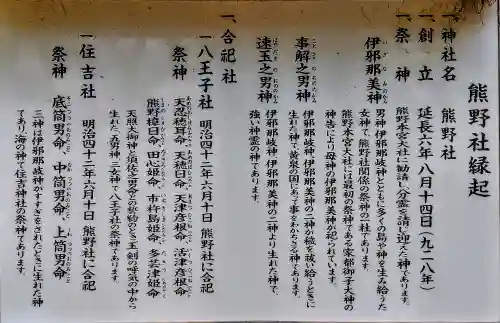 熊野社縁起
一、神社名 熊野社
一、創立 延長六年八月十四日(九二八年)
一、祭神 熊野本宮大社に勧請し分霊を請け迎えた神であります。
伊邪那美神 男神 伊邪那岐神とともに多くの島や神を生み給うた
女神で、熊野社関係の祭神の一社であります。
熊野本宮大社には最初の祭神である家都御子大神の
神告により母神の伊邪那美神が祀られています。
事解之男神 伊邪那岐神 伊邪那美神の二神が穢を祓い給うときに
生れた神で、黄泉の国にあって事をわかちさる神であります。
速玉之男神 伊邪那岐神 伊邪那美神の二神より生れた神で、
強い神霊の神であります。
一、合祀社
一八王子社 明治四十三年六月十日 熊野社に合祀
祭神 天忍穂耳命 天穂日命 天津彦根命 活津彦根命
熊野樟日命 田心姫命 市杵島姫命 多岐津姫命
天照大御神と須佐之男命との誓約のとき玉剣の呼気の中から
生れた五男神三女神で八王子社の祭神であります。
一住吉社 明治四十三年六月十日 熊野社に合祀
祭神 底筒男命 中筒男命 上筒男命
三神は伊邪那岐神がすすぎをされたときに生れた神
であり、海の神で住吉神社の祭神であります。